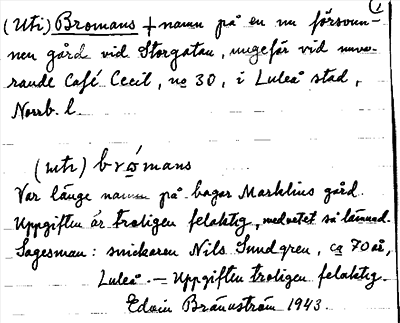 1
(Uti) Bromans + namn på en nu försvun-
nen gård vid Storgatan, ungefär vid nuva-
rande Café Cecil, no 30, i Luleå stad,
Norrb. l.
(uti) brómans
Var länge namn på bagar Marklius gård.
Uppgiften är troligen felaktig, medvetet så lämnad.
Sagesman: snickaren Nils Sundgren, ca 70 år,
Luleå. — Uppgiften troligen felaktig.
Edvin Brännström 1943.